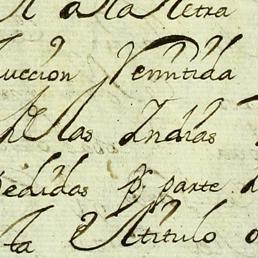 a la letra
uccion Remitida
de las Indias
pedidas p.r parte d
ta el titulo